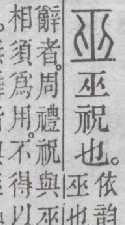 巫巫祝也。依韵
巫也
辭者。周禮祝與巫
相須爲用。不得以